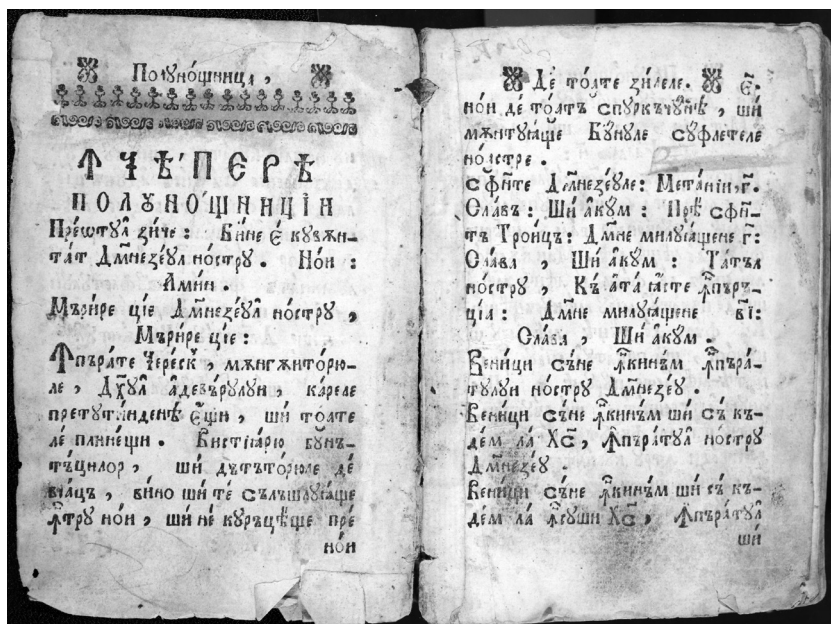 Полꙋно́щница,
Ꙟ҆ЧѢПЕРѢ
ПОЛꙊНО́ЩНИЦІИ
Пре́ѡтꙋл зи́че : Би́не є҆ кꙋвѫн-
та́т Дм҃незе́ꙋл но́стрꙋ . Но́и :
Ами́н
Мъри́ре ці́е Дм҃незе́ꙋл но́стрꙋ ,
Мъри́ре ці́е :
Ꙟ҆пъра́те Чере́ск , мѫнгѫито́рю-
ле , Дх҃ꙋл а҆девъ́рꙋлꙋи , ка́реле
претꙋти́нденѣ є҆́щи , ши то́ате
ле плине́щи . Вистїа́рю бꙋнъ-
тъ́цилор , ши дътъто́рюле де
вїа́цъ , ви́но ши те сълъшлꙋꙗ́ще
ꙟ҆тру но́и , ши не кꙋръцѣ́ще пре
но́и
Де то́ате зи́леле . є҃:
но́и де то́атъ спꙋркъчꙋ́нѣ , ши
мѫнтꙋꙗ́ще Бꙋ́нꙋле сꙋ́флетеле
но́астре .
Сфи́нте Дм҃незе́ꙋле : Мета́нїи, г҃.
Сла́въ : Ши а҆кꙋ́м : Прѣ сфи́н-
тъ Тро́ицъ : Дм҃не милꙋꙗ́щене г҃:
Сла́ва , Ши а҆кꙋ́м : Та́тъл
но́стрꙋ . Къ а҆та́ ꙗ́сте ꙟ҆пъръ-
ці́а : Дм҃не милꙋꙗ́щене в҃і:
Сла́ва , Ши а҆кꙋ́м .
Вени́ци съ́не ꙟ҆кинъ́м ꙟ҆пъра́-
тꙋлꙋи но́стрꙋ Дм҃незе́ꙋ .
Вени́ци съ́не ꙟ҆кинъ́м ши съ къ-
де́м ла Хс҃, Ꙟ҆пъра́тꙋл но́стрꙋ
Дм҃незе́ꙋ .
Вени́ци съ́не ꙟ҆кинъ́м ши съ къ-
де́м ла ꙟ҆сꙋши Хс҃, Ꙟ҆пъра́тꙋл
ши